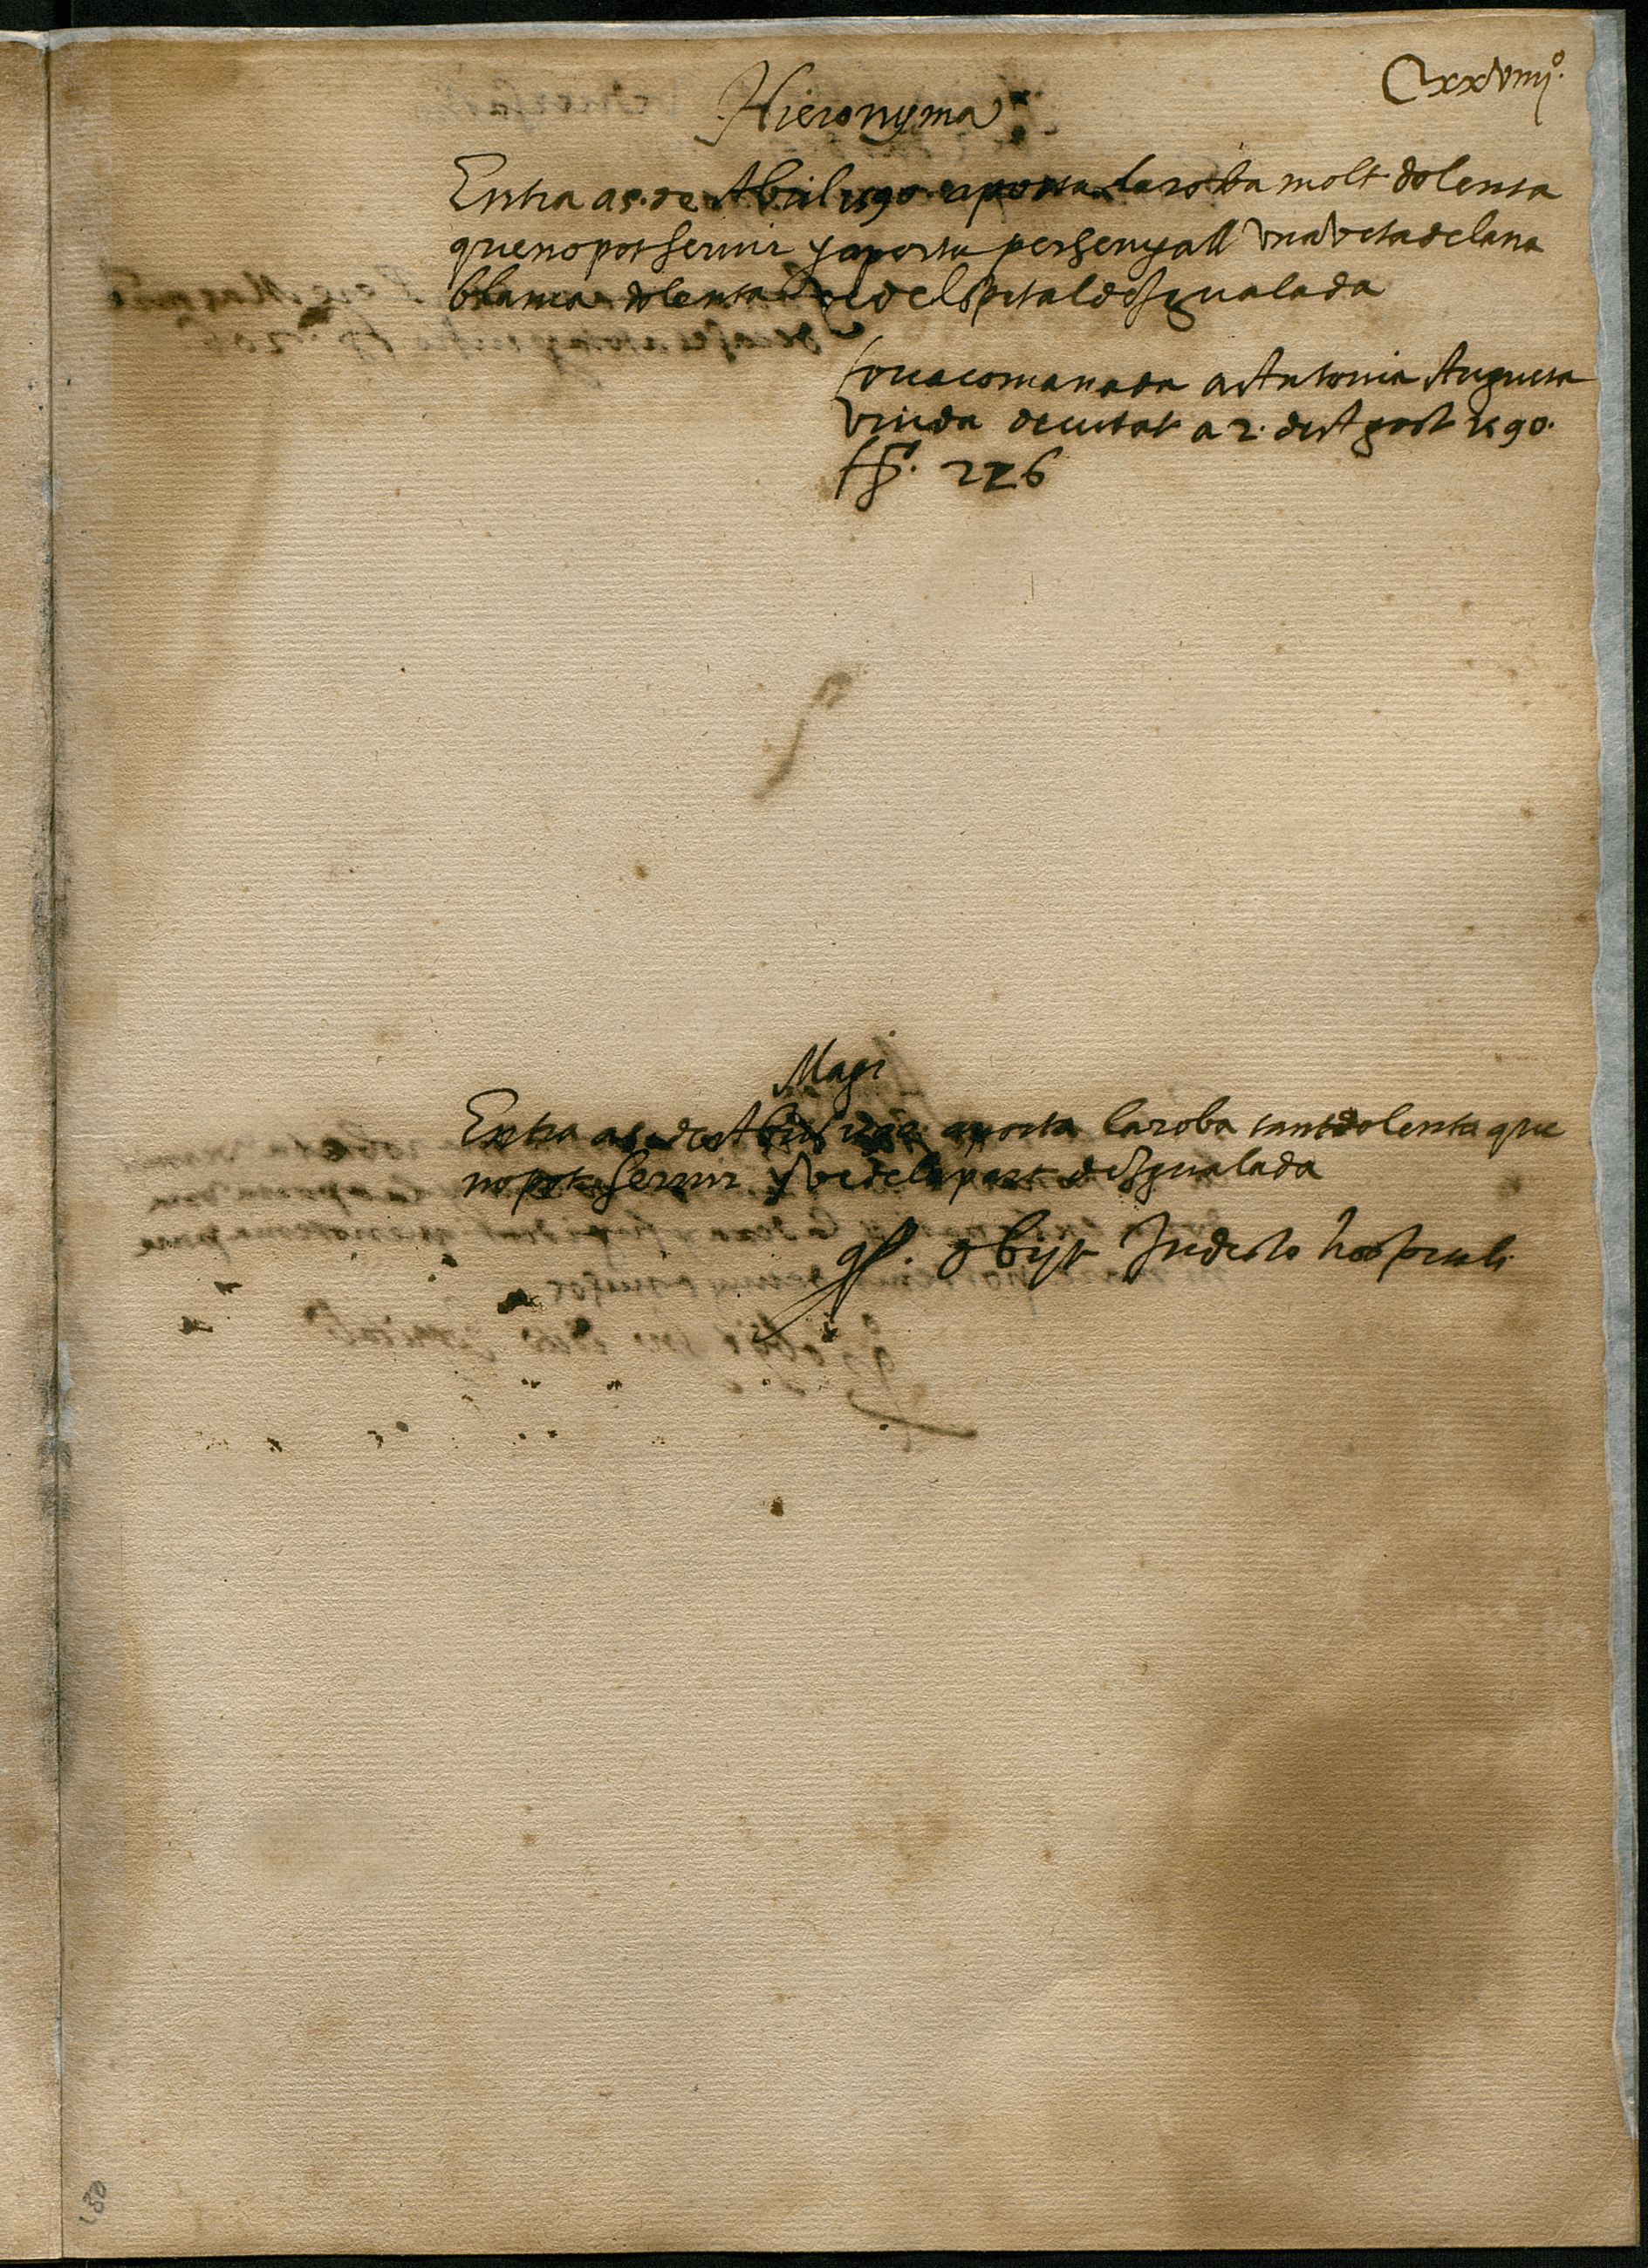 Cxxviiijº.
Hieronyma
Entra a 5. de Abril 1590 aporta la roba molt dolenta
que no pot seruir y aporta per senyall vna veta de lana
blanca dolenta ve del spital de Igualada
fou acomanada a Antonia Augusta
viuda de ciutat a 2. de Agost 1590.
226
Magi
Entra a 5. de Abril aporta la roba tant dolenta que
no pot seruir y ve de la part de Igualada
obijt In dicto hospitali
130